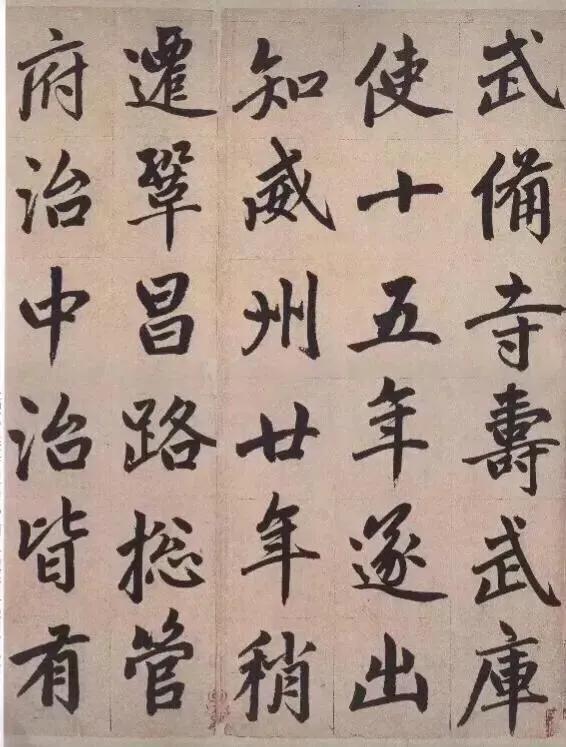 武備寺壽武庫
使十五年遂出
知威州廿年稍
遷鞏昌路捴管
府治中治皆有